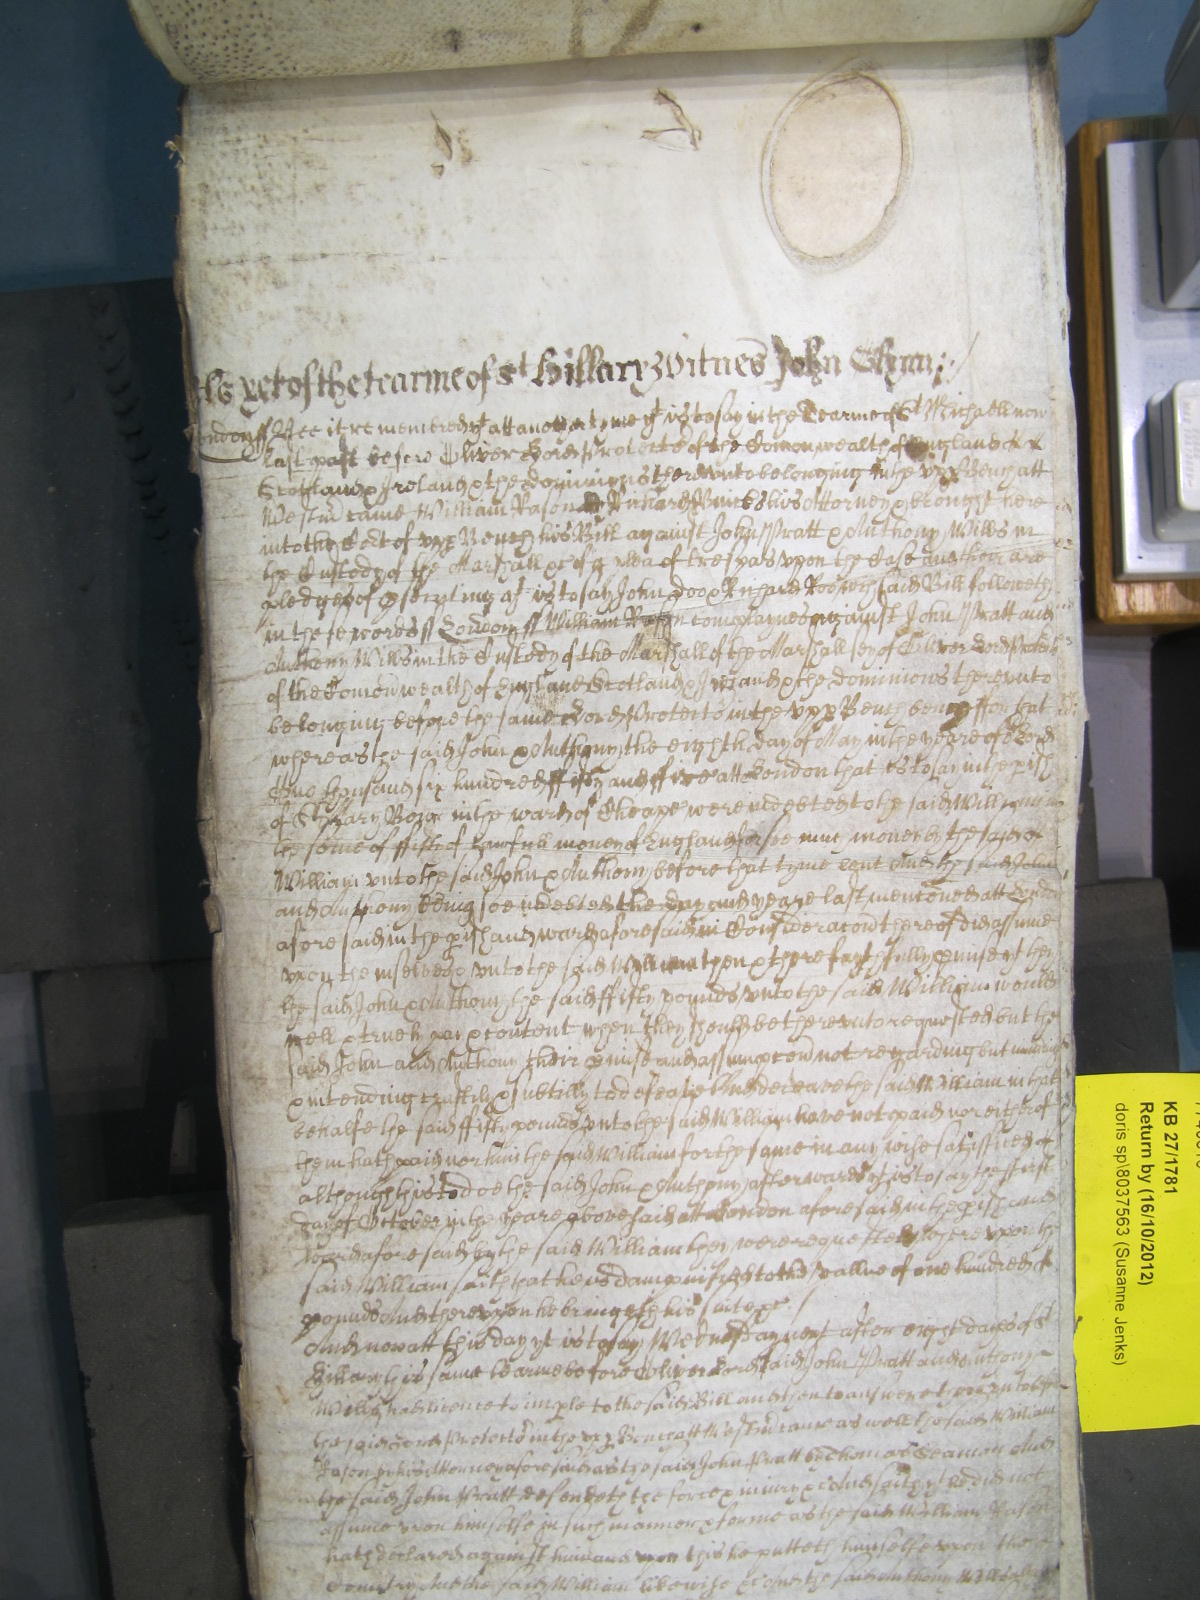 As yet of the tearme of St Hillary Witnes John Glynn
London ss Bee it remembred yt att another tyme yt is to say in the Tearme of St Michaell now
last past before Oliver Lord Protector of the Comonwealth of England
Scotland & Ireland & the dominions thereunto belonging in the upp Bench att
Westm came William Rason by Richard his Attorney & brought here
into the Cort of upp Bench his Bill against John Pratt & Anthony Wills in
the Custody of the Marshall &c of a plea of trespas upon the Case and there are
pledges of prosecuting yt is to say John doo & Richard Roo wch said Bill followeth
in these words ss London ss William Rason complaines against John Pratt and
Anthony Wills in the Custody of the Marshall of the Marshallsey of Oliver Lord Protector
of the Comonwealth of England Scotland & Ireland & the dominions thereunto
belonging before the same Lord Protector in the upp Bench being ffor that
whereas the said John & Anthony the eighth day of May in the yeare of or Lord
One thousand six hundred ffifty and ffive att London that is to say in the pish
of St Mary Bow in the ward of Cheape were indebted to the said William in
the some of ffifty li of lawfull money of England for soe much money by the said
William unto the said John & Anthony before that tyme lent And the said John
and Anthony being soe indebted the day and yeare last mentioned att London
aforesaid in the pish and ward aforesaid in Consideracon thereof did assume
upon themselves & unto the said William then & there faythfully pmise yt they
the said John & Anthony the said ffifty pounds unto the said William would
well & truely pay & content when they should be thereunto requested but the
said John and Anthony their pmise and assumpcon not regarding but
& intending craftily & subtilly to defraude and deceave the said William in that
behalfe the said ffifty pounds unto the said William have not paid nor either of
them hath paid nor him the said William for the same in any wise satisfied
although this to doe the said John & Anthony afterwards yt is to say the first
day of October in the yeare abovesaid att London aforesaid in the pish and
Ward aforesaid by the said William they were requested Whereupon the
said William saith that he is dampnified to the vallue of one hundred
pounds And thereupon he brings his suite &c
And now att this day yt is to say Wednesday next after eight dayes of St
Hillary this same tearme before Oliver Lord said John Pratt and Anthony
Wills had licence to imple to the said Bill and then to answere &c
the said Lord Protector in the upp Bench att Westm came as well the said William
Rason by his Attorney aforesaid as the said John Pratt by Thomas Seaman And
the said John Pratt defendeth the force & iniury &c And saith yt he did not
assume upon himselfe in such manner & forme as the said William Rason
hath declared against him and upon this he putteth himselfe upon the
Countrey And the said William likewise &c And the said Anthony Wills
KB 27/1781
Return by (16/10/2012)
doris sp\8037563 (Susanne Jenks)